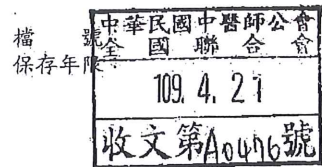 檔號
保存年限：
中華民國中醫師公會
全國聯合會
109. 4. 21
收文第A0476號